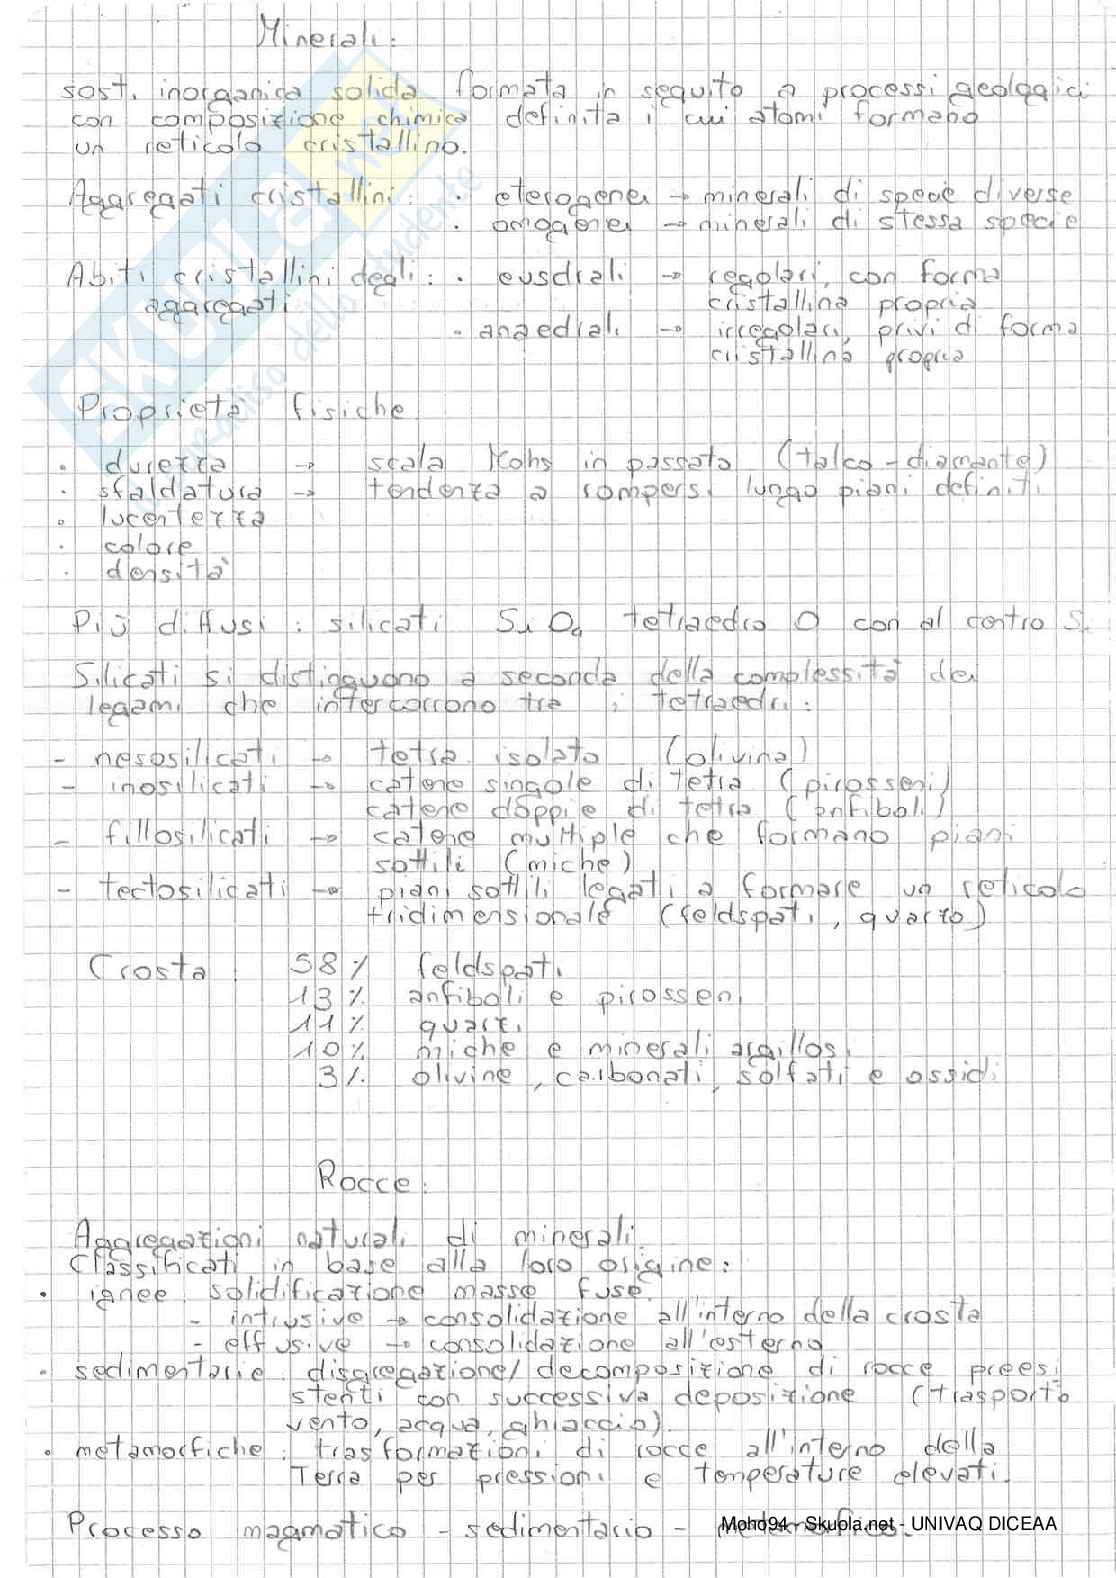 Minerali:
sost. inorganica solida formata in seguito a processi geologici
con composizione chimica definita i cui atomi formano
un reticolo cristallino.
Aggregati cristallini: · eterogenei → minerali di specie diverse
· omogenei → minerali di stessa specie
Abiti cristallini degli: · euedrali → regolari, con forma
aggregati cristallina propria
· anaedrali → irregolari, privi di forma
cristallina propria
Proprietà fisiche
· durezza → scala Mohs in passato (talco - diamante)
· sfaldatura → tendenza a rompersi lungo piani definiti
· lucentezza
· colore
· densità
Più diffusi: silicati SiO4 tetraedro O con al centro Si
Silicati si distinguono a seconda della complessità dei
legami che intercorrono tra i tetraedri:
- nesosilicati → tetra. isolato (olivina)
- inosilicati → catene singole di tetra (pirosseni)
catene doppie di tetra (anfiboli)
- fillosilicati → catene multiple che formano piani
sottili (miche)
- tectosilicati → piani sottili legati a formare un reticolo
tridimensionale (feldspati, quarzo)
Crosta 58% feldspati
13% anfiboli e pirosseni
11% quarzi
10% miche e minerali argillosi
3% olivine, carbonati, solfati e ossidi
Rocce:
Aggregazioni naturali di minerali.
Classificati in base alla loro origine:
· ignee: solidificazione masse fuse.
- intrusive → consolidazione all'interno della crosta
- effusive → consolidazione all'esterno
· sedimentarie: disgregazione/decomposizione di rocce preesi
stenti con successiva deposizione (trasporto
vento, acqua, ghiaccio)
· metamorfiche: trasformazioni di rocce all'interno della
Terra per pressioni e temperature elevati.
Processo magmatico - sedimentario -
Moho94 - Skuola.net - UNIVAQ DICEAA